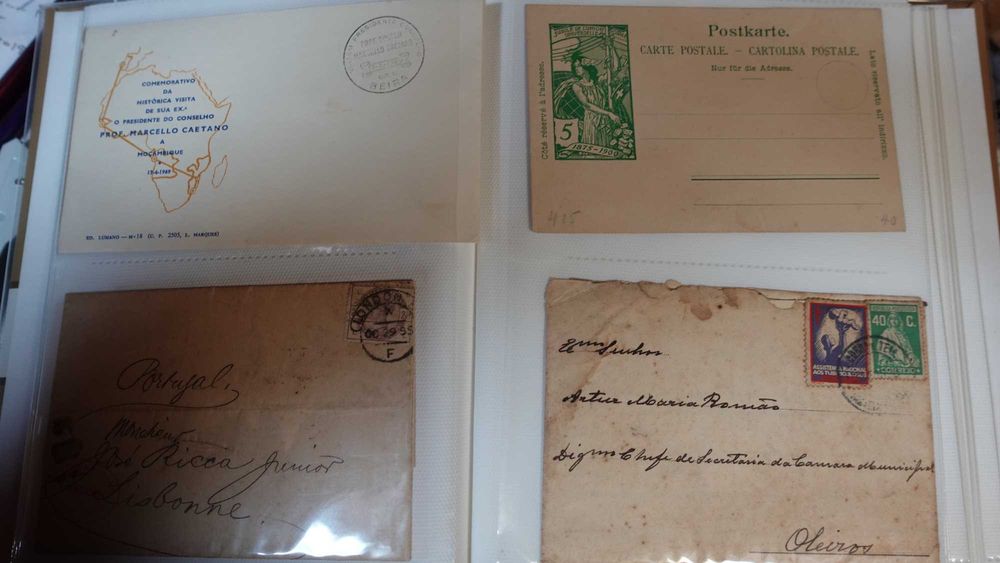 COMEMORATIVO
DA
HISTÓRICA VISITA
DE SUA EX.ª
O PRESIDENTE DO CONSELHO
PROF. MARCELLO CAETANO
A
MOÇAMBIQUE
17-4-1969
ED. LUMANO — N.º 18 (C. P. 2503, L. MARQUES)
PROF. DOUTOR
MARCELLO CAETANO
BEIRA
Postkarte.
CARTE POSTALE. — CARTOLINA POSTALE.
Nur für die Adresse.
Côté réservé à l'adresse.
Lato riservato all' indirizzo.
5
1875-1900
425
40
LONDON
OC 29 95
F
Portugal,
Monsieur
José Ricca Junior
Lisbonne
ASSISTENCIA NACIONAL
AOS TUBERCULOSOS
40 C.
CORREIO
Exmo Senhor
Artur Maria Romão
Digmo Chefe de Secretaria da Camara Municipal
Oleiros